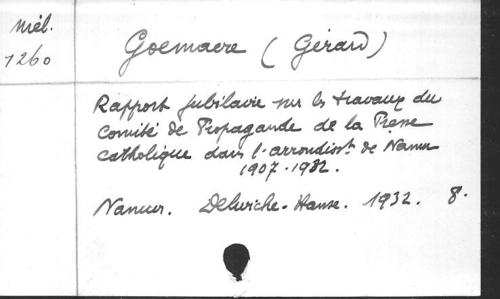 Mél.
1260
Goemaere (Gérard)
Rapport jubilaire sur les travaux du
Comité de Propagande de la Presse
catholique dans l'arrondisst de Namur
1907-1932.
Namur. Delwiche-Hanse. 1932. 8.